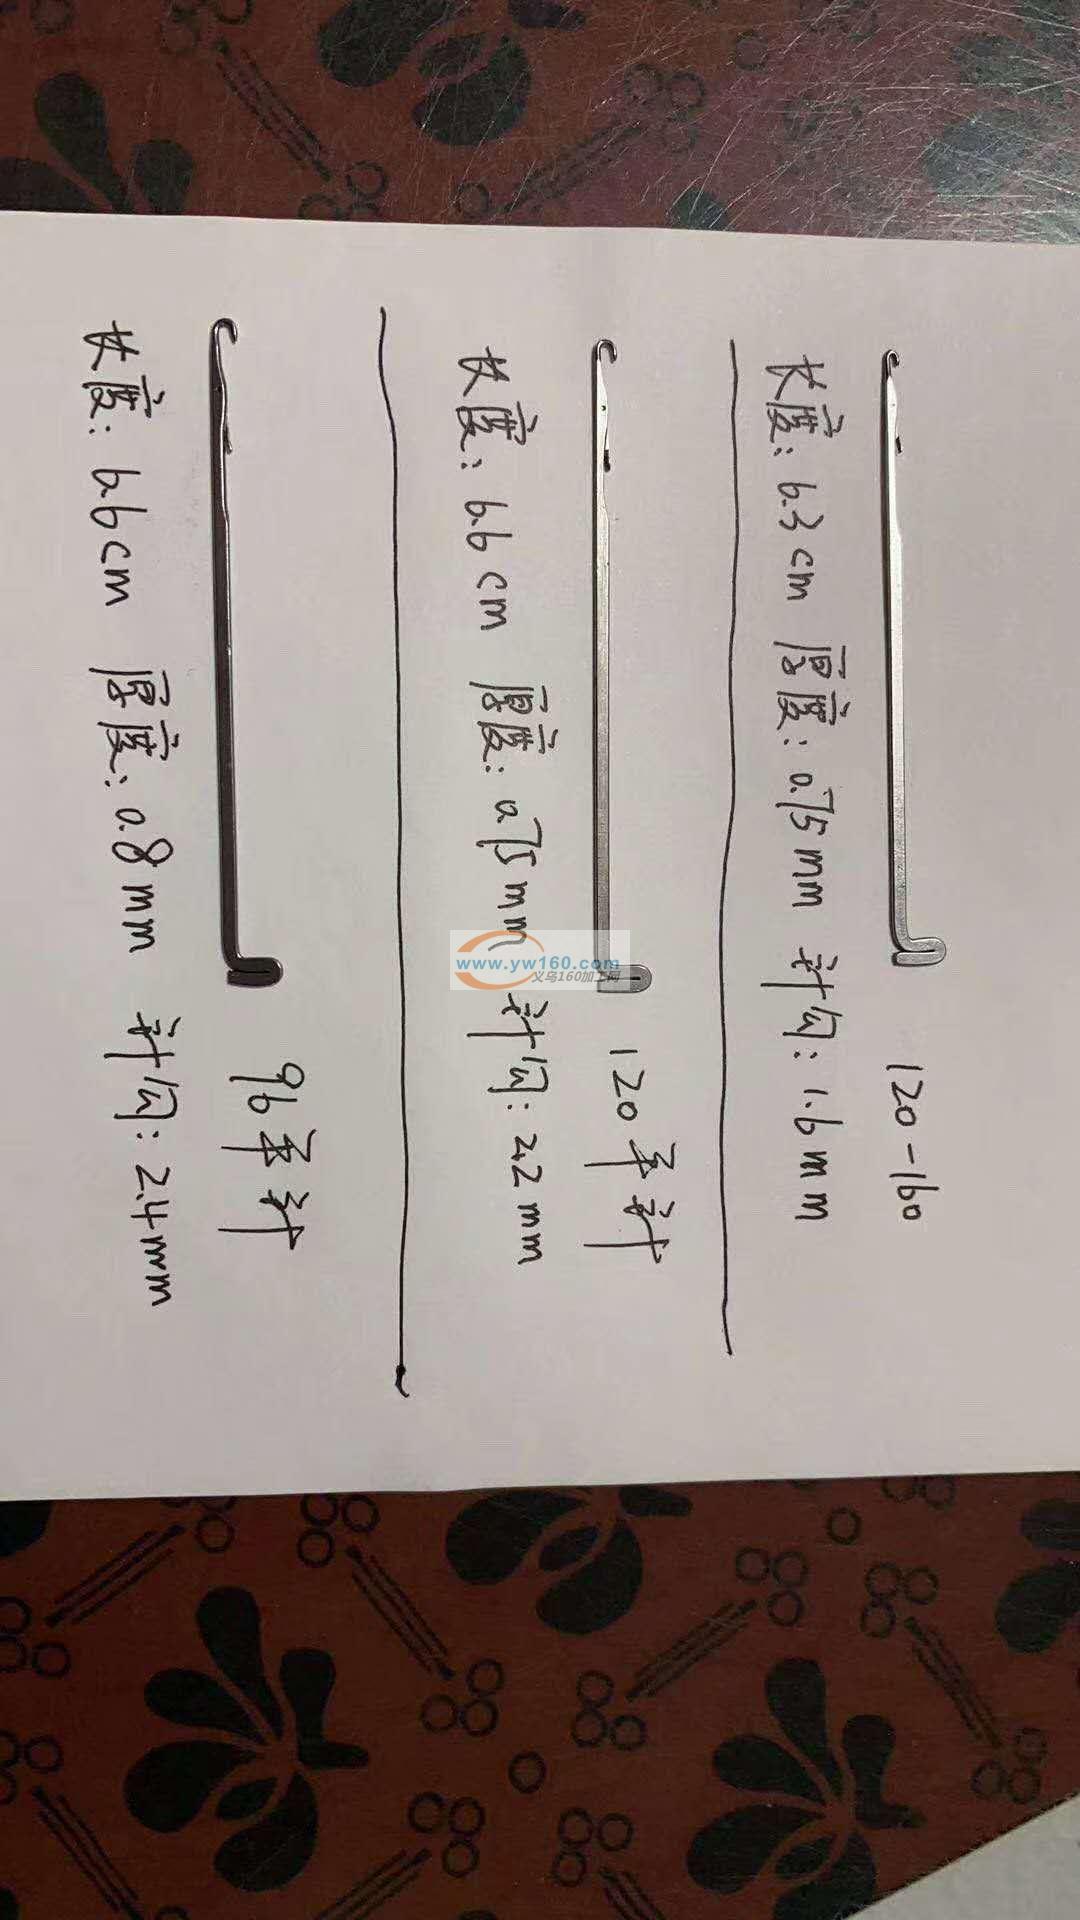 120-160
长度:6.3cm 厚度:0.75mm 针勾:1.6mm
120 针
www.yw160.com
义乌160加工网
长度:6.6cm 厚度:0.75mm 针勾:2.2mm
96 针
长度:6.6cm 厚度:0.8mm 针勾:2.4mm